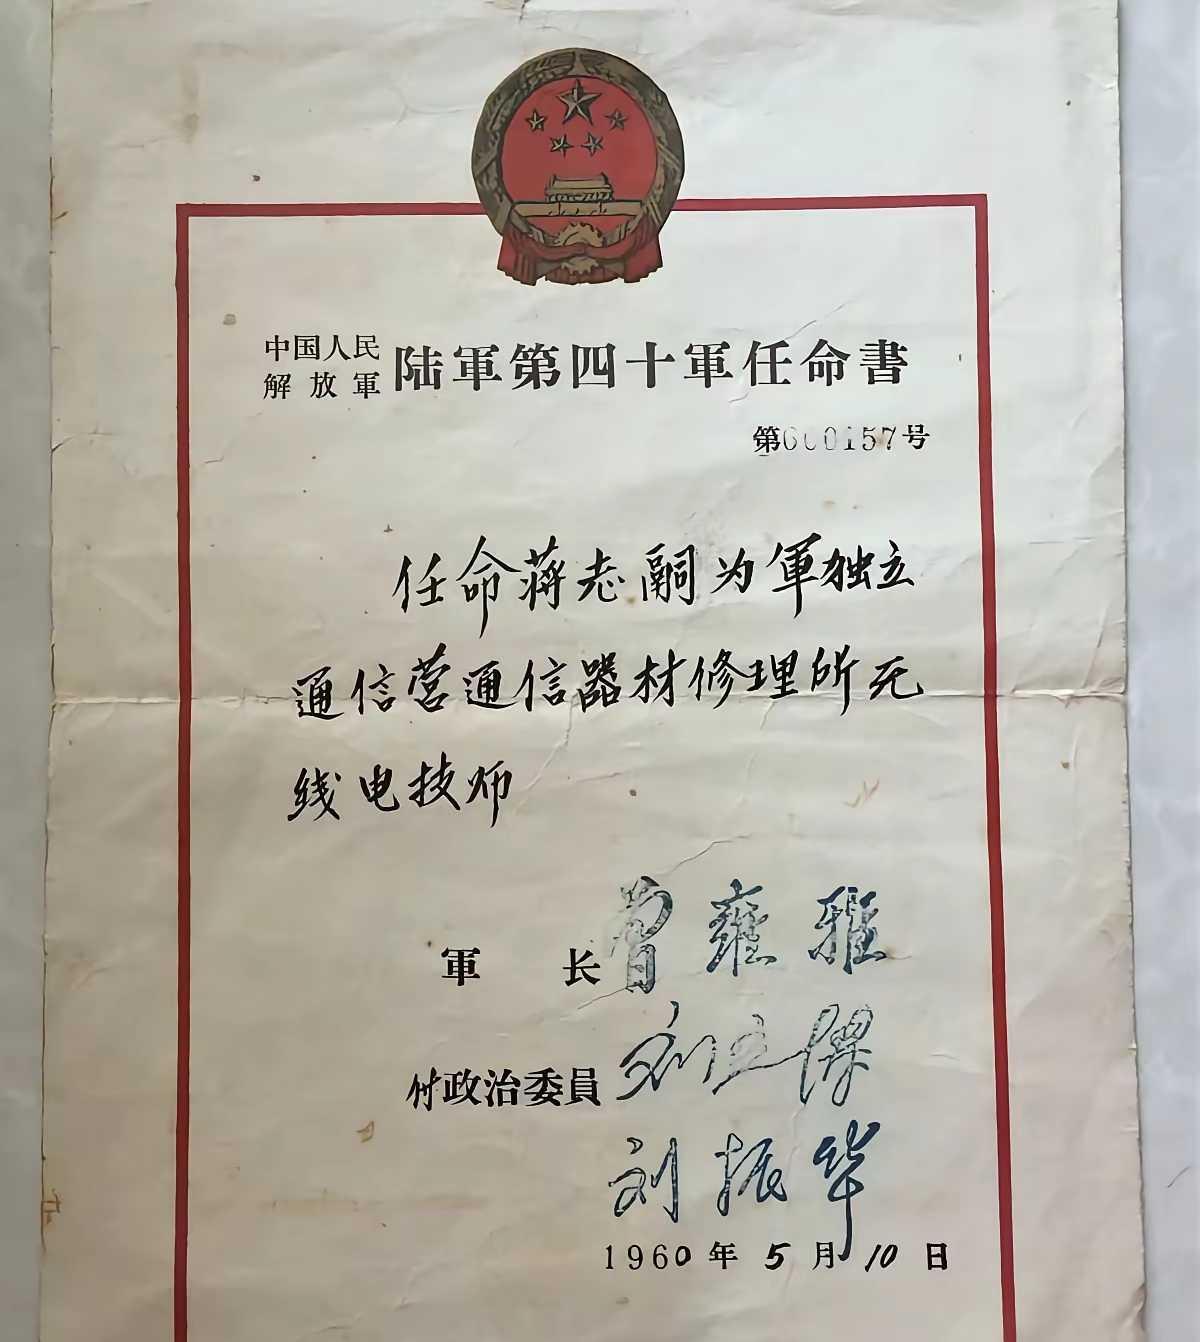 中国人民解放軍 陆軍第四十軍任命書
第000157号
任命蒋志嗣为軍独立
通信营通信器材修理所无
线电技师
軍 长 曾雍雅
付政治委員 刘立傑
刘振华
1960年5月10日